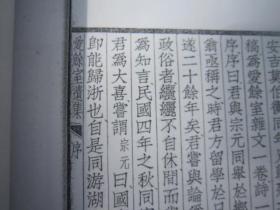 稿爲愛餘室雜文一卷詩一
序序曰君與宗元同舉於
翁亟稱之時君方留學於
遂二十餘年矣君嘗與論
政俗者纚纚不自休間而
爲知言民國四年之秋同
君爲大喜嘗謂宗元曰國
卽能歸浙也自是同游湖
愛餘室遺集 序